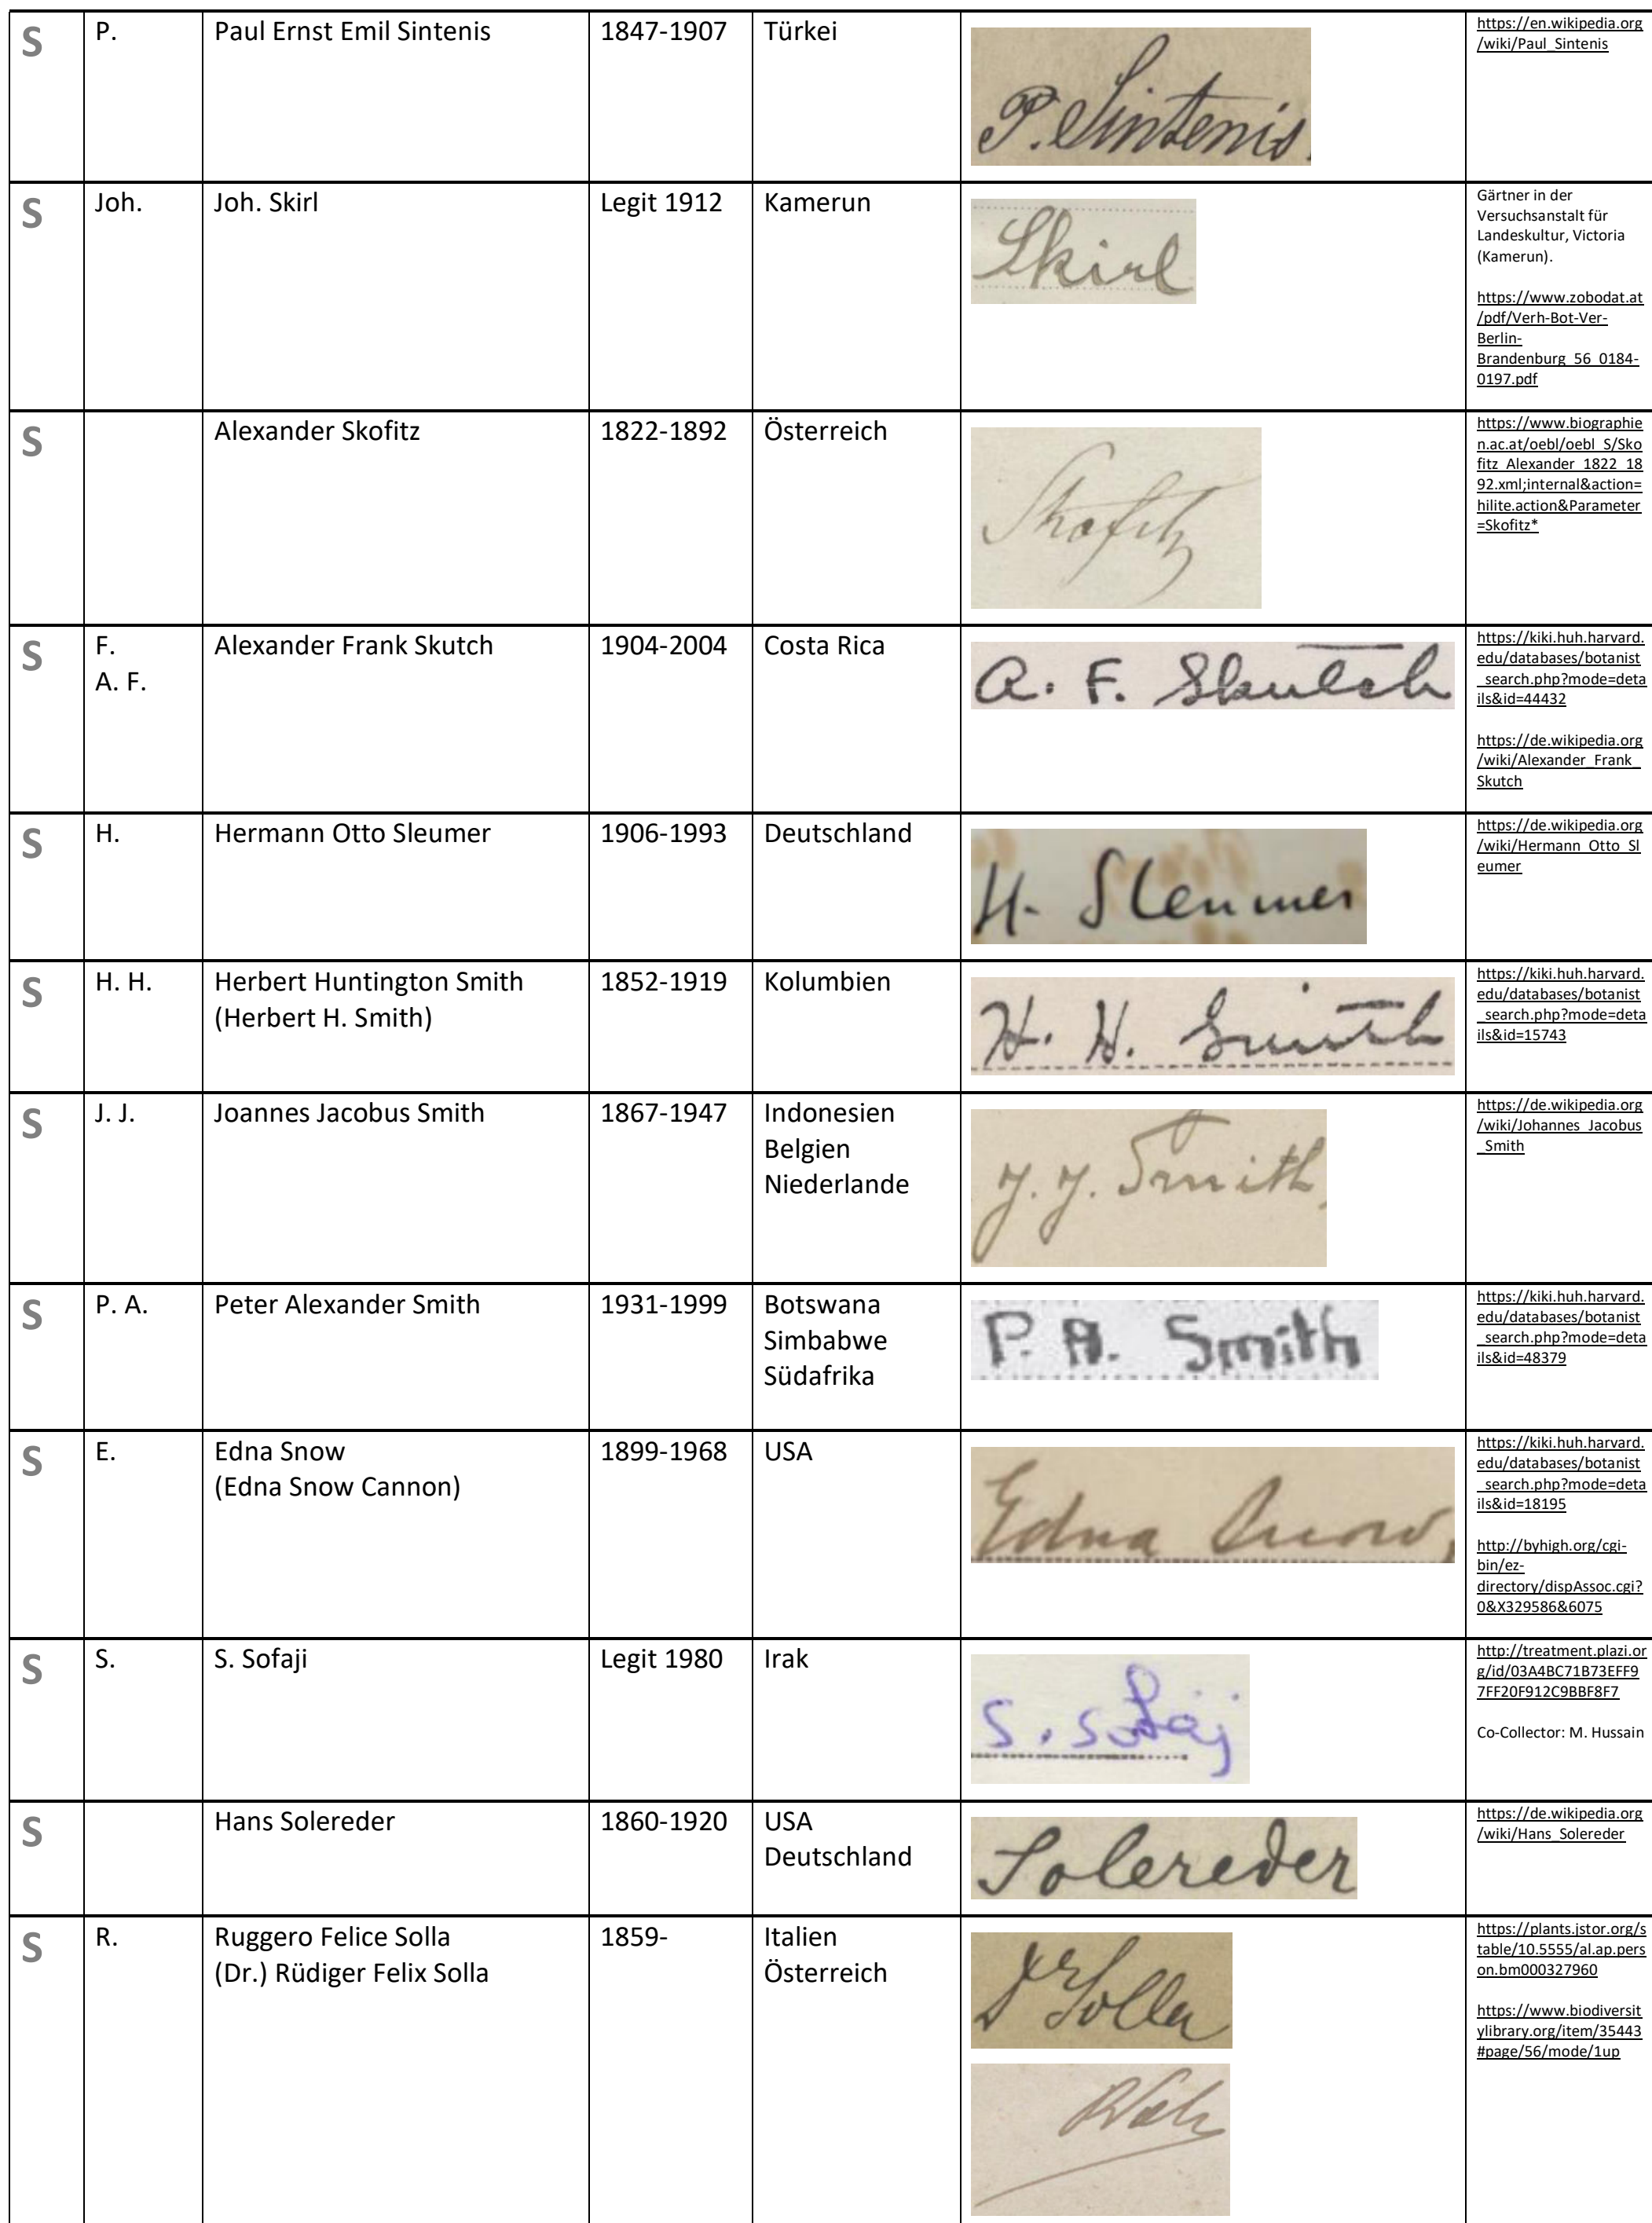 S P. Paul Ernst Emil Sintenis 1847-1907 Türkei
P. Sintenis.
https://en.wikipedia.org
/wiki/Paul_Sintenis
S Joh. Joh. Skirl Legit 1912 Kamerun
Skirl
Gärtner in der
Versuchsanstalt für
Landeskultur, Victoria
(Kamerun).
https://www.zobodat.at
/pdf/Verh-Bot-Ver-
Berlin-
Brandenburg_56_0184-
0197.pdf
S Alexander Skofitz 1822-1892 Österreich
Skofitz
https://www.biographie
n.ac.at/oebl/oebl_S/Sko
fitz_Alexander_1822_18
92.xml;internal&action=
hilite.action&Parameter
=Skofitz*
S F.
A. F.
Alexander Frank Skutch 1904-2004 Costa Rica
A. F. Skutch
https://kiki.huh.harvard.
edu/databases/botanist
_search.php?mode=deta
ils&id=44432
https://de.wikipedia.org
/wiki/Alexander_Frank_
Skutch
S H. Hermann Otto Sleumer 1906-1993 Deutschland
H. Sleumer
https://de.wikipedia.org
/wiki/Hermann_Otto_Sl
eumer
S H. H. Herbert Huntington Smith
(Herbert H. Smith)
1852-1919 Kolumbien
H. H. Smith
https://kiki.huh.harvard.
edu/databases/botanist
_search.php?mode=deta
ils&id=15743
S J. J. Joannes Jacobus Smith 1867-1947 Indonesien
Belgien
Niederlande
J. J. Smith
https://de.wikipedia.org
/wiki/Johannes_Jacobus
_Smith
S P. A. Peter Alexander Smith 1931-1999 Botswana
Simbabwe
Südafrika
P. A. Smith
https://kiki.huh.harvard.
edu/databases/botanist
_search.php?mode=deta
ils&id=48379
S E. Edna Snow
(Edna Snow Cannon)
1899-1968 USA
Edna Snow,
https://kiki.huh.harvard.
edu/databases/botanist
_search.php?mode=deta
ils&id=18195
http://byhigh.org/cgi-
bin/ez-
directory/dispAssoc.cgi?
0&X329586&6075
S S. S. Sofaji Legit 1980 Irak
S. Sofaj
http://treatment.plazi.or
g/id/03A4BC71B73EFF9
7FF20F912C9BBF8F7
Co-Collector: M. Hussain
S Hans Solereder 1860-1920 USA
Deutschland
Solereder
https://de.wikipedia.org
/wiki/Hans_Solereder
S R. Ruggero Felice Solla
(Dr.) Rüdiger Felix Solla
1859- Italien
Österreich
Dr Solla
https://plants.jstor.org/s
table/10.5555/al.ap.pers
on.bm000327960
https://www.biodiversit
ylibrary.org/item/35443
#page/56/mode/1up